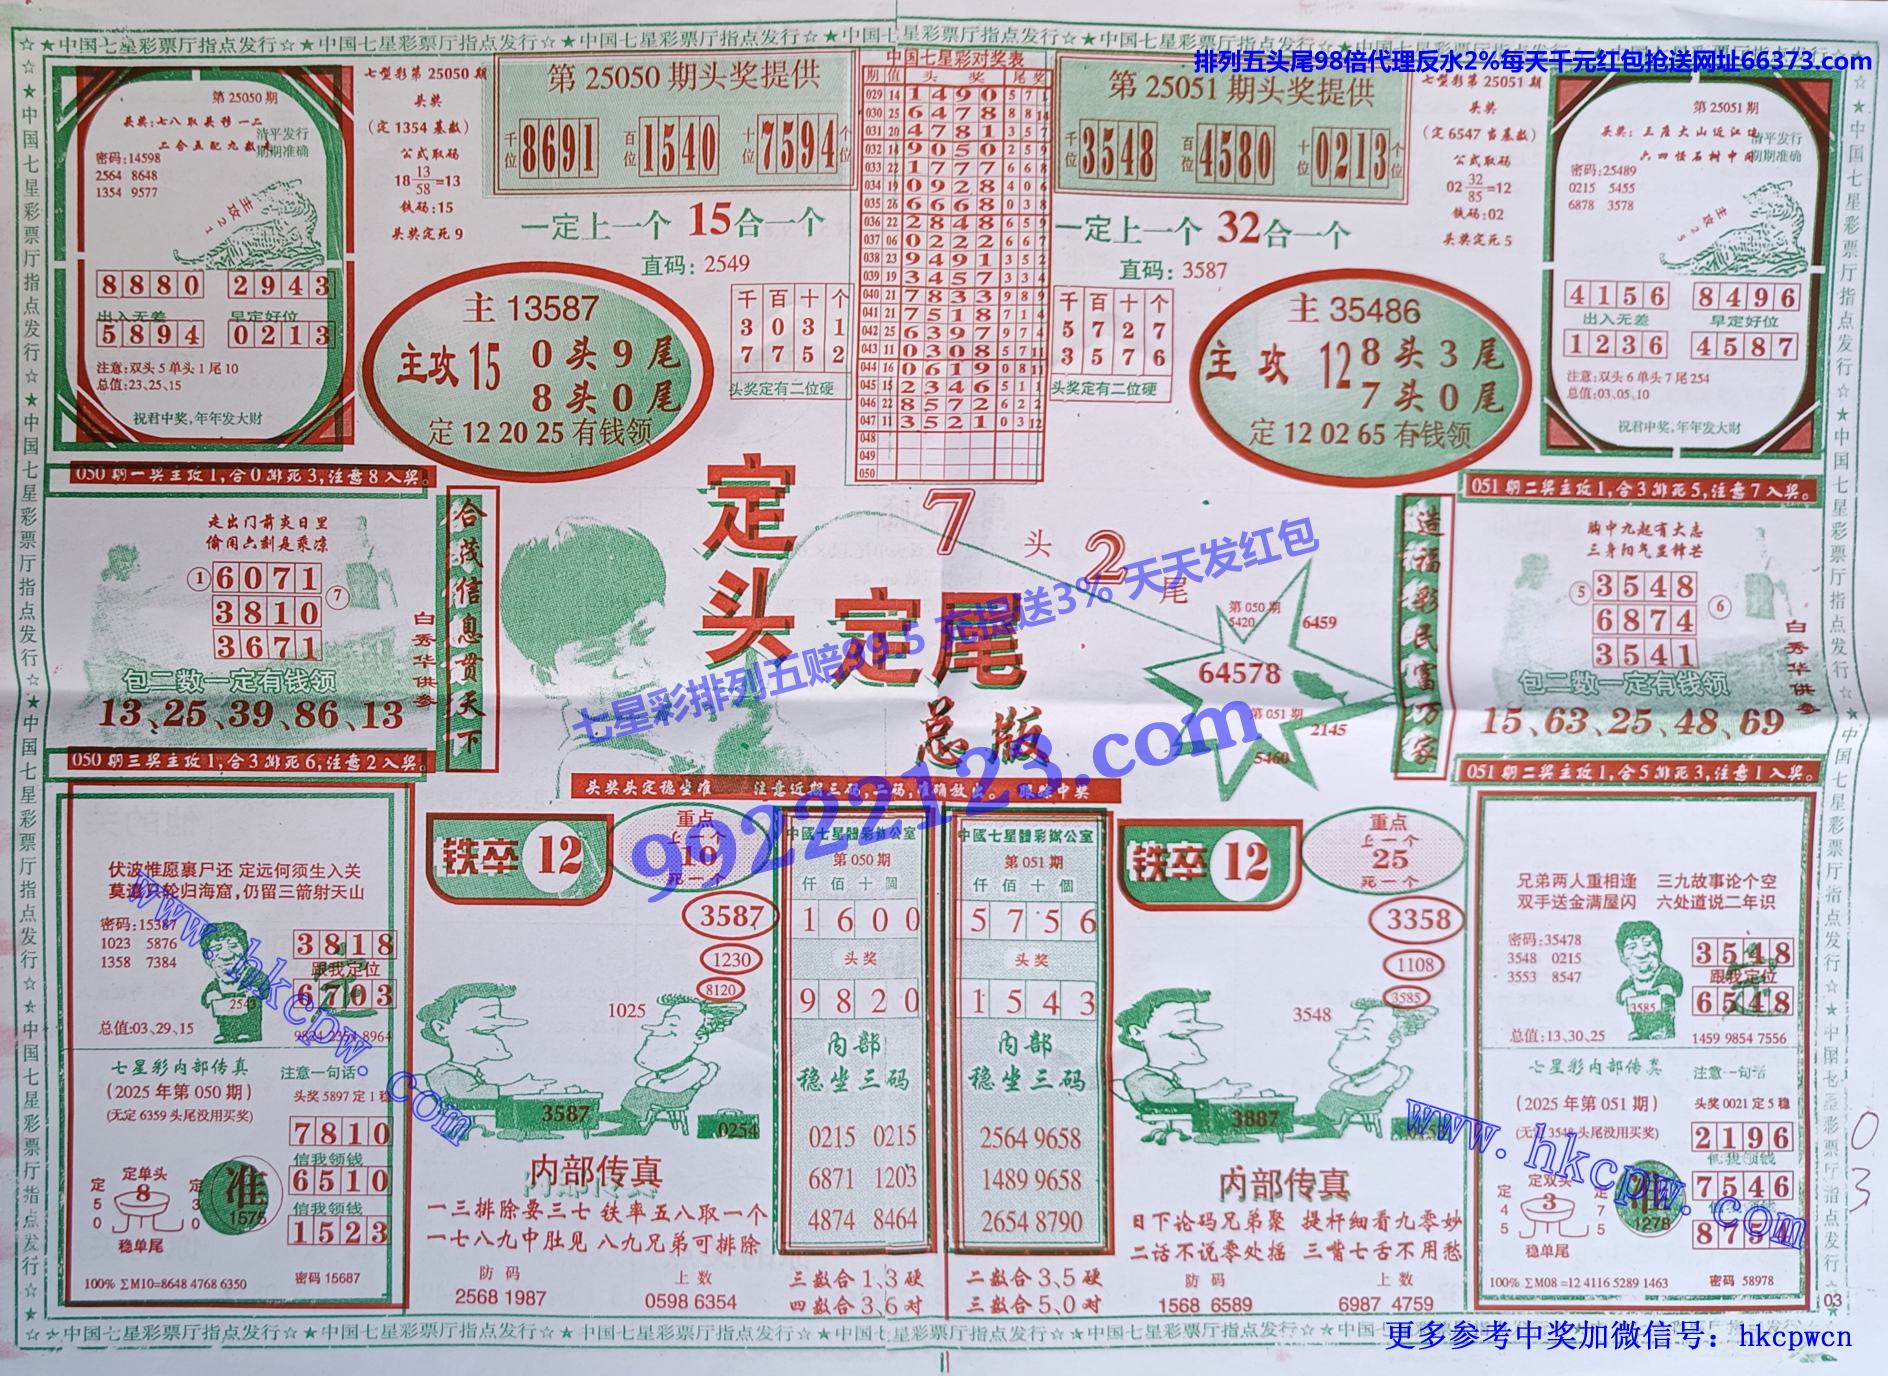 ☆★中国七星彩票厅指点发行☆★中国七星彩票厅指点发行☆★中国七星彩票厅指点发行☆★
排列五头尾98倍代理反水2%每天千元红包抢送网址66373.com
第 25050 期
头奖:七八取头移一二
清平发行
期期准确
密码:14598
2564 8648
1354 9577
主攻21
8880 2943
出入无差 早定好位
5894 0213
注意:双头 5 单头 1 尾 10
总值:23,25,15
祝君中奖,年年发大财
七型彩第 25050 期
头奖
(定 1354 基数)
公式取码
18 13/58=13
铁码:15
头奖定死 9
第 25050 期头奖提供
千位 8691 百位 1540 十位 7594 个位
一定上一个 15合一个
直码:2549
主 13587
主攻 15 0 头 9 尾
8 头 0 尾
定 12 20 25 有钱领
千百十个
3031
7752
头奖定有二位硬
中国七星彩对奖表
期 值 头 奖 尾 奖
029 14 1490 5 7
030 25 6478 8 8
031 20 4781 3 5
032 14 9050 2 5
033 22 1777 6 6
034 19 0928 4 0
035 26 6668 0 3
036 22 2848 6 5
037 06 0222 6 6
038 23 9491 3 5
039 19 3457 3 3
040 21 7833 9 8
041 21 7518 7 1
042 25 6397 9 7
043 11 0308 5 7
044 16 0619 0 8
045 15 2346 5 1
046 22 8572 6 2
047 11 3521 0 3 12
048
049
050
第 25051 期头奖提供
千位 3548 百位 4580 十位 0213 个位
一定上一个 32合一个
直码:3587
千百十个
5727
3576
头奖定有二位硬
主 35486
主攻 12 8 头 3 尾
7 头 0 尾
定 12 02 65 有钱领
七型彩第 25051 期
头奖
(定 6547 当基数)
公式取码
02 32/85=12
铁码:02
头奖定死 5
第 25051 期
头奖:三座大山近江
六四怪石树中
清平发行
期期准确
密码:25489
0215 5455
6878 3578
主攻25
4156 8496
出入无差 早定好位
1236 4587
注意:双头 6 单头 7 尾 254
总值:03,05,10
祝君中奖,年年发大财
050 期一奖主攻1,合0排死3,注意8入奖。
走出门前炎日里
偷闲六刻是乘凉
① 6071 ⑦
3810
3671
包二数一定有钱领
13、25、39、86、13
白秀华供参
050 期三奖主攻1,合3排死6,注意2入奖。
合茂信息贯天下
定头定尾
总版
7 头 2 尾
第 050 期
5420
6459
64578
第 051 期
2145
5460
七星彩排列五赔99.5 充提送3% 天天发红包
99222123.com
头奖头定稳坐准 注意近期三码,二码,准确放出。 跟踪中奖
造福彩民富万家
051 期二奖主攻1,合3排死5,注意7入奖。
胸中九起有大志
三身阳气呈锋芒
⑤ 3548 ⑥
6874
3541
包二数一定有钱领
15、63、25、48、69
白秀华供参
051 期二奖主攻1,合5排死3,注意1入奖。
伏波惟愿裹尸还 定远何须生入关
莫道只轮归海窟,仍留三箭射天山
密码:15387
1023 5876
1358 7384
3818
跟我定位
6703
总值:03,29,15
9824 2354 8964
七星彩内部传真
注意一句话
(2025 年第 050 期)
头奖 5897 定 1 稳
(无定 6359 头尾没用买奖)
7810
信我领钱
6510
信我领钱
1523
定单头
定50 8 定30
稳单尾
准
1575
100% ΣM10=8648 4768 6350
密码 15687
www.hkcpw.com
铁卒 12
重点
上一个
19
死一个
3587
1230
8120
1025
3587
0254
内部传真
一三排除要三七 铁率五八取一个
一七八九中肚见 八九兄弟可排除
防码 上数
2568 1987 0598 6354
中國七星體彩辦公室
第 050 期
仟佰十個
1600
头奖
9820
内部
稳坐三码
0215 0215
6871 1203
4874 8464
三数合 1、3 硬
四数合 3、6 对
中國七星體彩辦公室
第 051 期
仟佰十個
5756
头奖
1543
内部
稳坐三码
2564 9658
1489 9658
2654 8790
二数合 3、5 硬
三数合 5、0 对
铁卒 12
重点
上一个
25
死一个
3358
1108
3585
3548
3887
内部传真
日下论码兄弟聚 提杆细看九零妙
二话不说零处摇 三嘴七舌不用愁
防码 上数
1568 6589 6987 4759
兄弟两人重相逢 三九故事论个空
双手送金满屋闪 六处道说二年识
密码:35478
3548 0215
3553 8547
3585
3548
跟我定位
6548
总值:13,30,25
1459 9854 7556
七星彩内部传真
注意一句话
(2025 年第 051 期)
头奖 0021 定 5 稳
(无定 3548 头尾没用买奖)
2196
7546
8754
定双头
定45 3 定75
稳单尾
准
1278
100% ΣM08 =12 4116 5289 1463
密码 58978
www.hkcpw.com
03
03
☆★中国七星彩票厅指点发行☆★中国七星彩票厅指点发行☆★中国七星彩票厅指点发行☆★
更多参考中奖加微信号：hkcpwcn